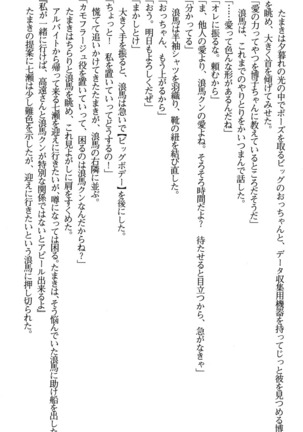 たまきは夕暮れの光の中でポーズを取るビッグのおっちゃんと、データ収集用機器を持ってじっと彼を見つめる博
を眺め、大きく首を傾げてみせた。
「愛の力ってやつを博子ちゃんに教えているところだそうだ」
これまでのやりとりをかいつまんで話した。
「……愛って色んな形があるんだね」
「オレに振るな。頼むから」
「ま、他人の愛より、浪馬クンの愛よね。そろそろ時間だよ？　待たせると目立つから、急がなきゃ」
「分かってる」
浪馬は半袖シャツを羽織り、靴の紐を結び直した。
「おっちゃん、もう上がるから」
「おう。明日もよろしくだぜ」
「まかしとけ」
大きく手を振ると、浪馬は急いで【ビッグボデー】を後にした。
「ちょっと！　私を置いていってどうするの！」
慌てて追いかけてきたたまきが、浪馬の右隣に並ぶ。
「カモフラージュ役を置いていって、困るのは浪馬クンなんだからね？」
たまきはちらりと浪馬を眺め、これ見よがしに肩をすくめた。
アルバイトから帰って来る七瀬を迎えに行きたいが、噂になっては困る。たまきは、そう悩んでいた浪馬に助け船を出した
『私が一緒に行けば、高遠さんと浪馬クンが特別な関係ではないとアピール出来るよ』
たまきの提案に七瀬は少し難色を示したが、迎えに行きたいという浪馬に押し切られた。